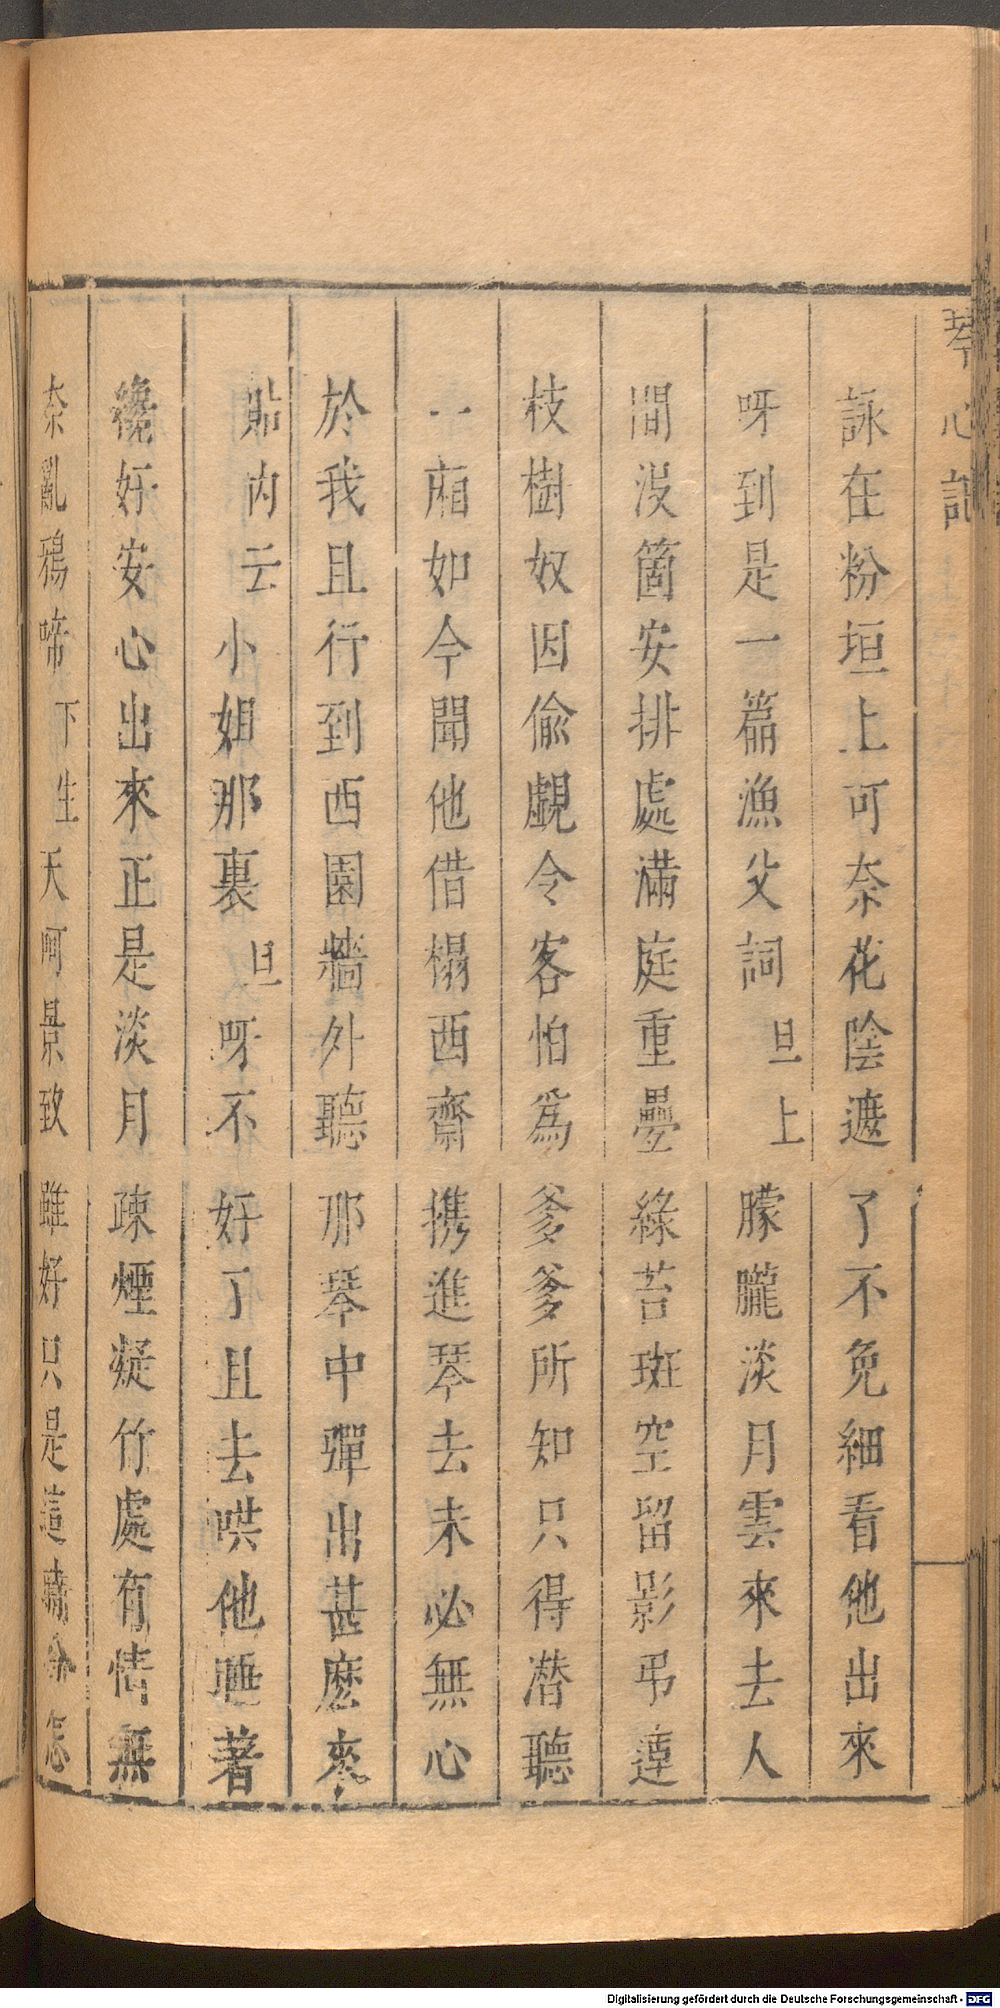 琴心記
詠在粉垣上可奈花陰遮了不免細看他出來
呀到是一篇漁父詞旦上朦朧淡月雲來去人
間沒箇安排處滿庭重疊綠苔斑空留影弔連
枝樹奴因偷覷令客怕爲爹爹所知只得潛聽
一廂如今聞他借榻西齋携進琴去未必無心
於我且行到西園牆外聽那琴中彈出甚麽來
貼內云小姐那裏旦呀不好了且去哄他睡著
纔好安心出來正是淡月疎煙凝竹處有情無
奈亂鴉啼下生天呵景致雖好只是這怎
Digitalisierung gefördert durch die Deutsche Forschungsgemeinschaft - DFG